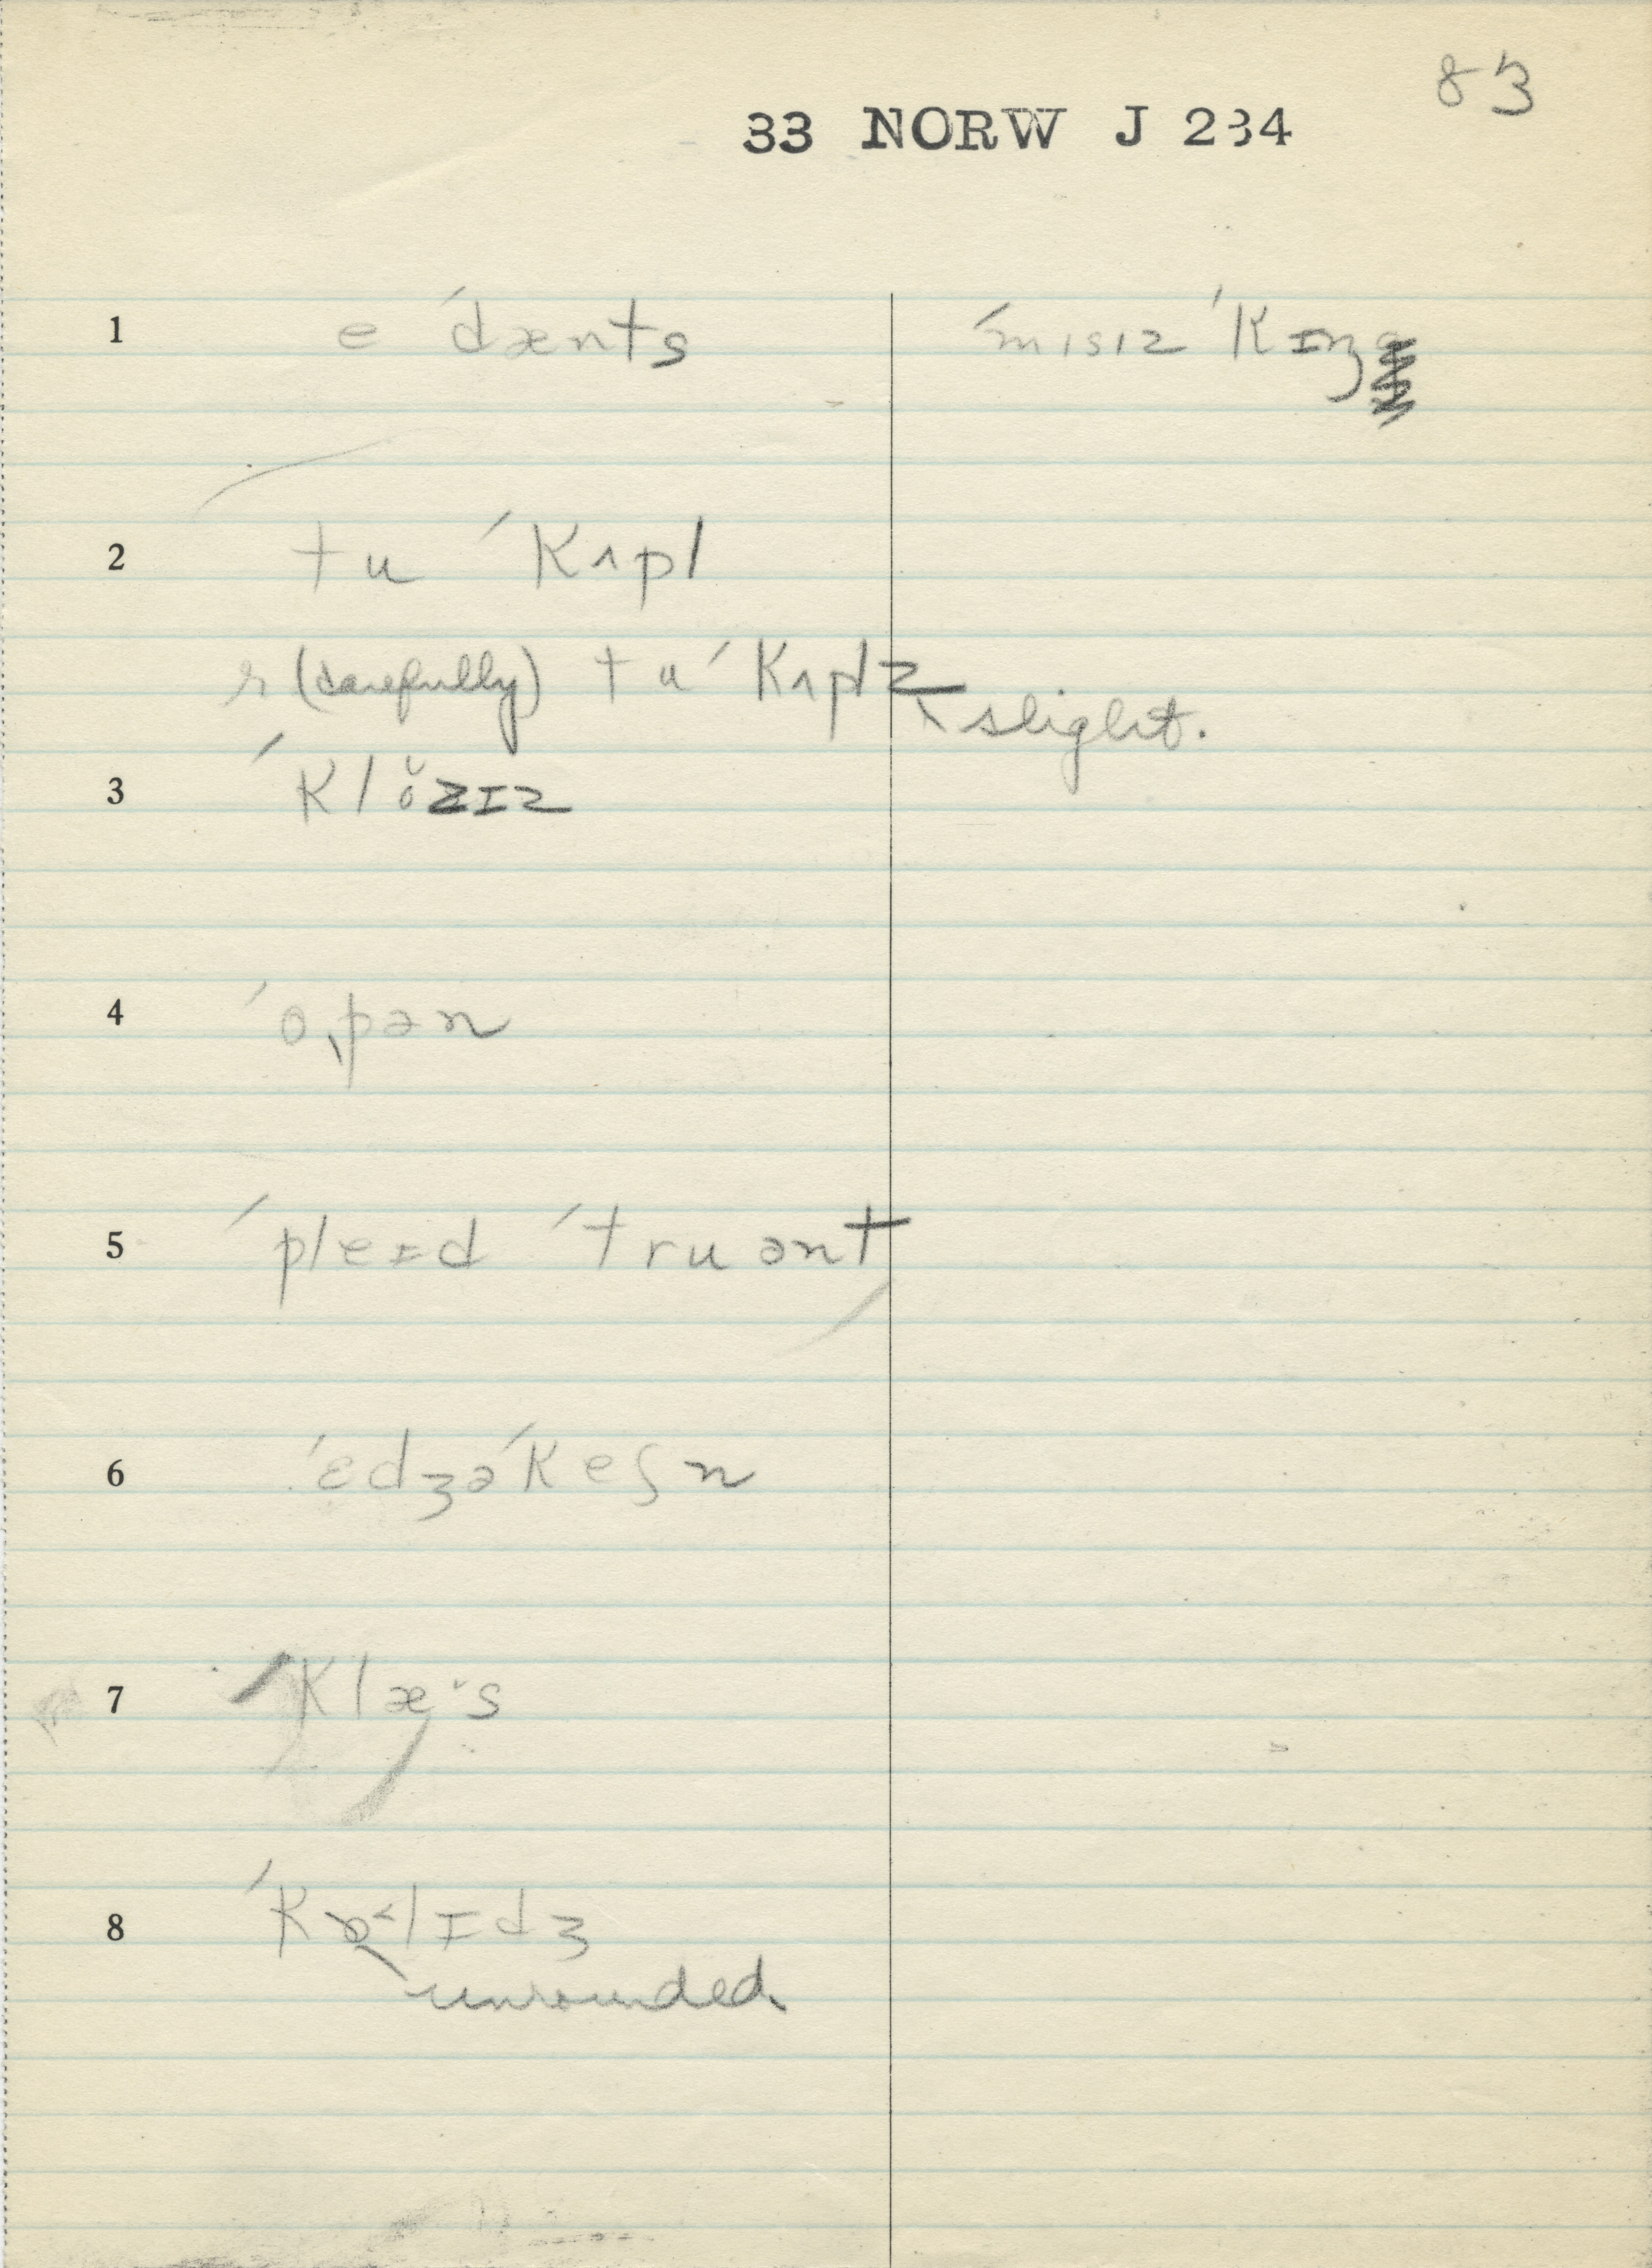 83
33 NORW J 234
1 e ˊdænts ˊmɪsɪz ˊkɪŋ
2 tu ˊkʌpl
r (carefully) tu ˊkʌplz slight.
3 ˊklŏzɪz
4 ˊo,pən
5 ˊpleɪd ˊtruənt
6 ˊɛdʒəˊkeʃn
7 ˊklæ·s
8 ˊkɒ˂lɪdʒ
unrounded.